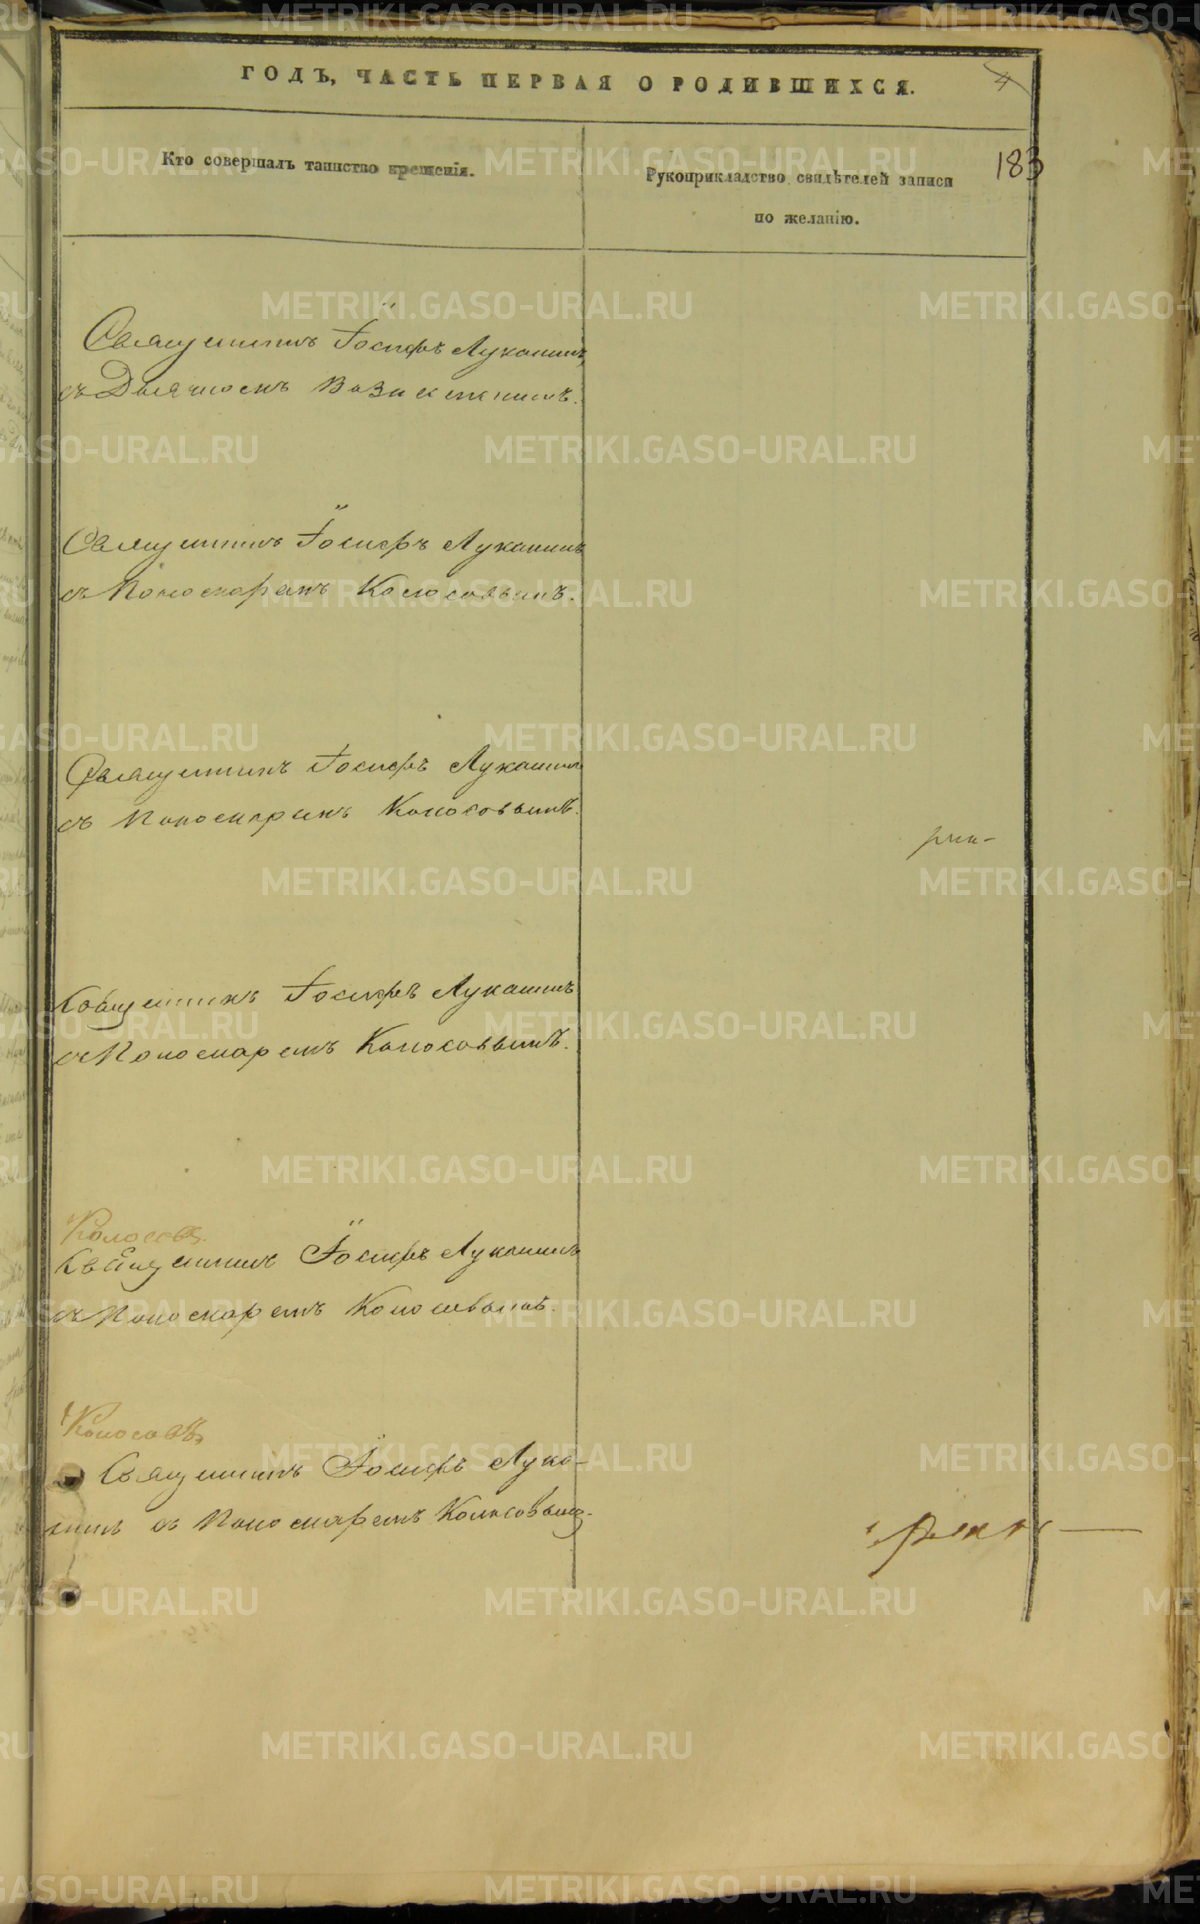 ГОДЪ, ЧАСТЬ ПЕРВАЯ О РОДИВШИХСЯ.
4
183
Кто совершалъ таинство крещенія.
Рукоприкладство свидѣтелей записи
по желанію.
Священникъ Іосифъ Лукашинъ
съ Дьячкомъ
Священникъ Іосифъ Лукашинъ
съ Пономаремъ Колосовымъ.
Священникъ Іосифъ Лукашинъ
съ Пономаремъ Колосовымъ.
Священникъ Іосифъ Лукашинъ
съ Пономаремъ Колосовымъ.
Колосовъ.
Священникъ Іосифъ Лукашинъ
съ Пономаремъ Колосовымъ.
Колосовъ
Священникъ Іосифъ Лука-
шинъ съ Пономаремъ Колосовымъ.
METRIKI.GASO-URAL.RU